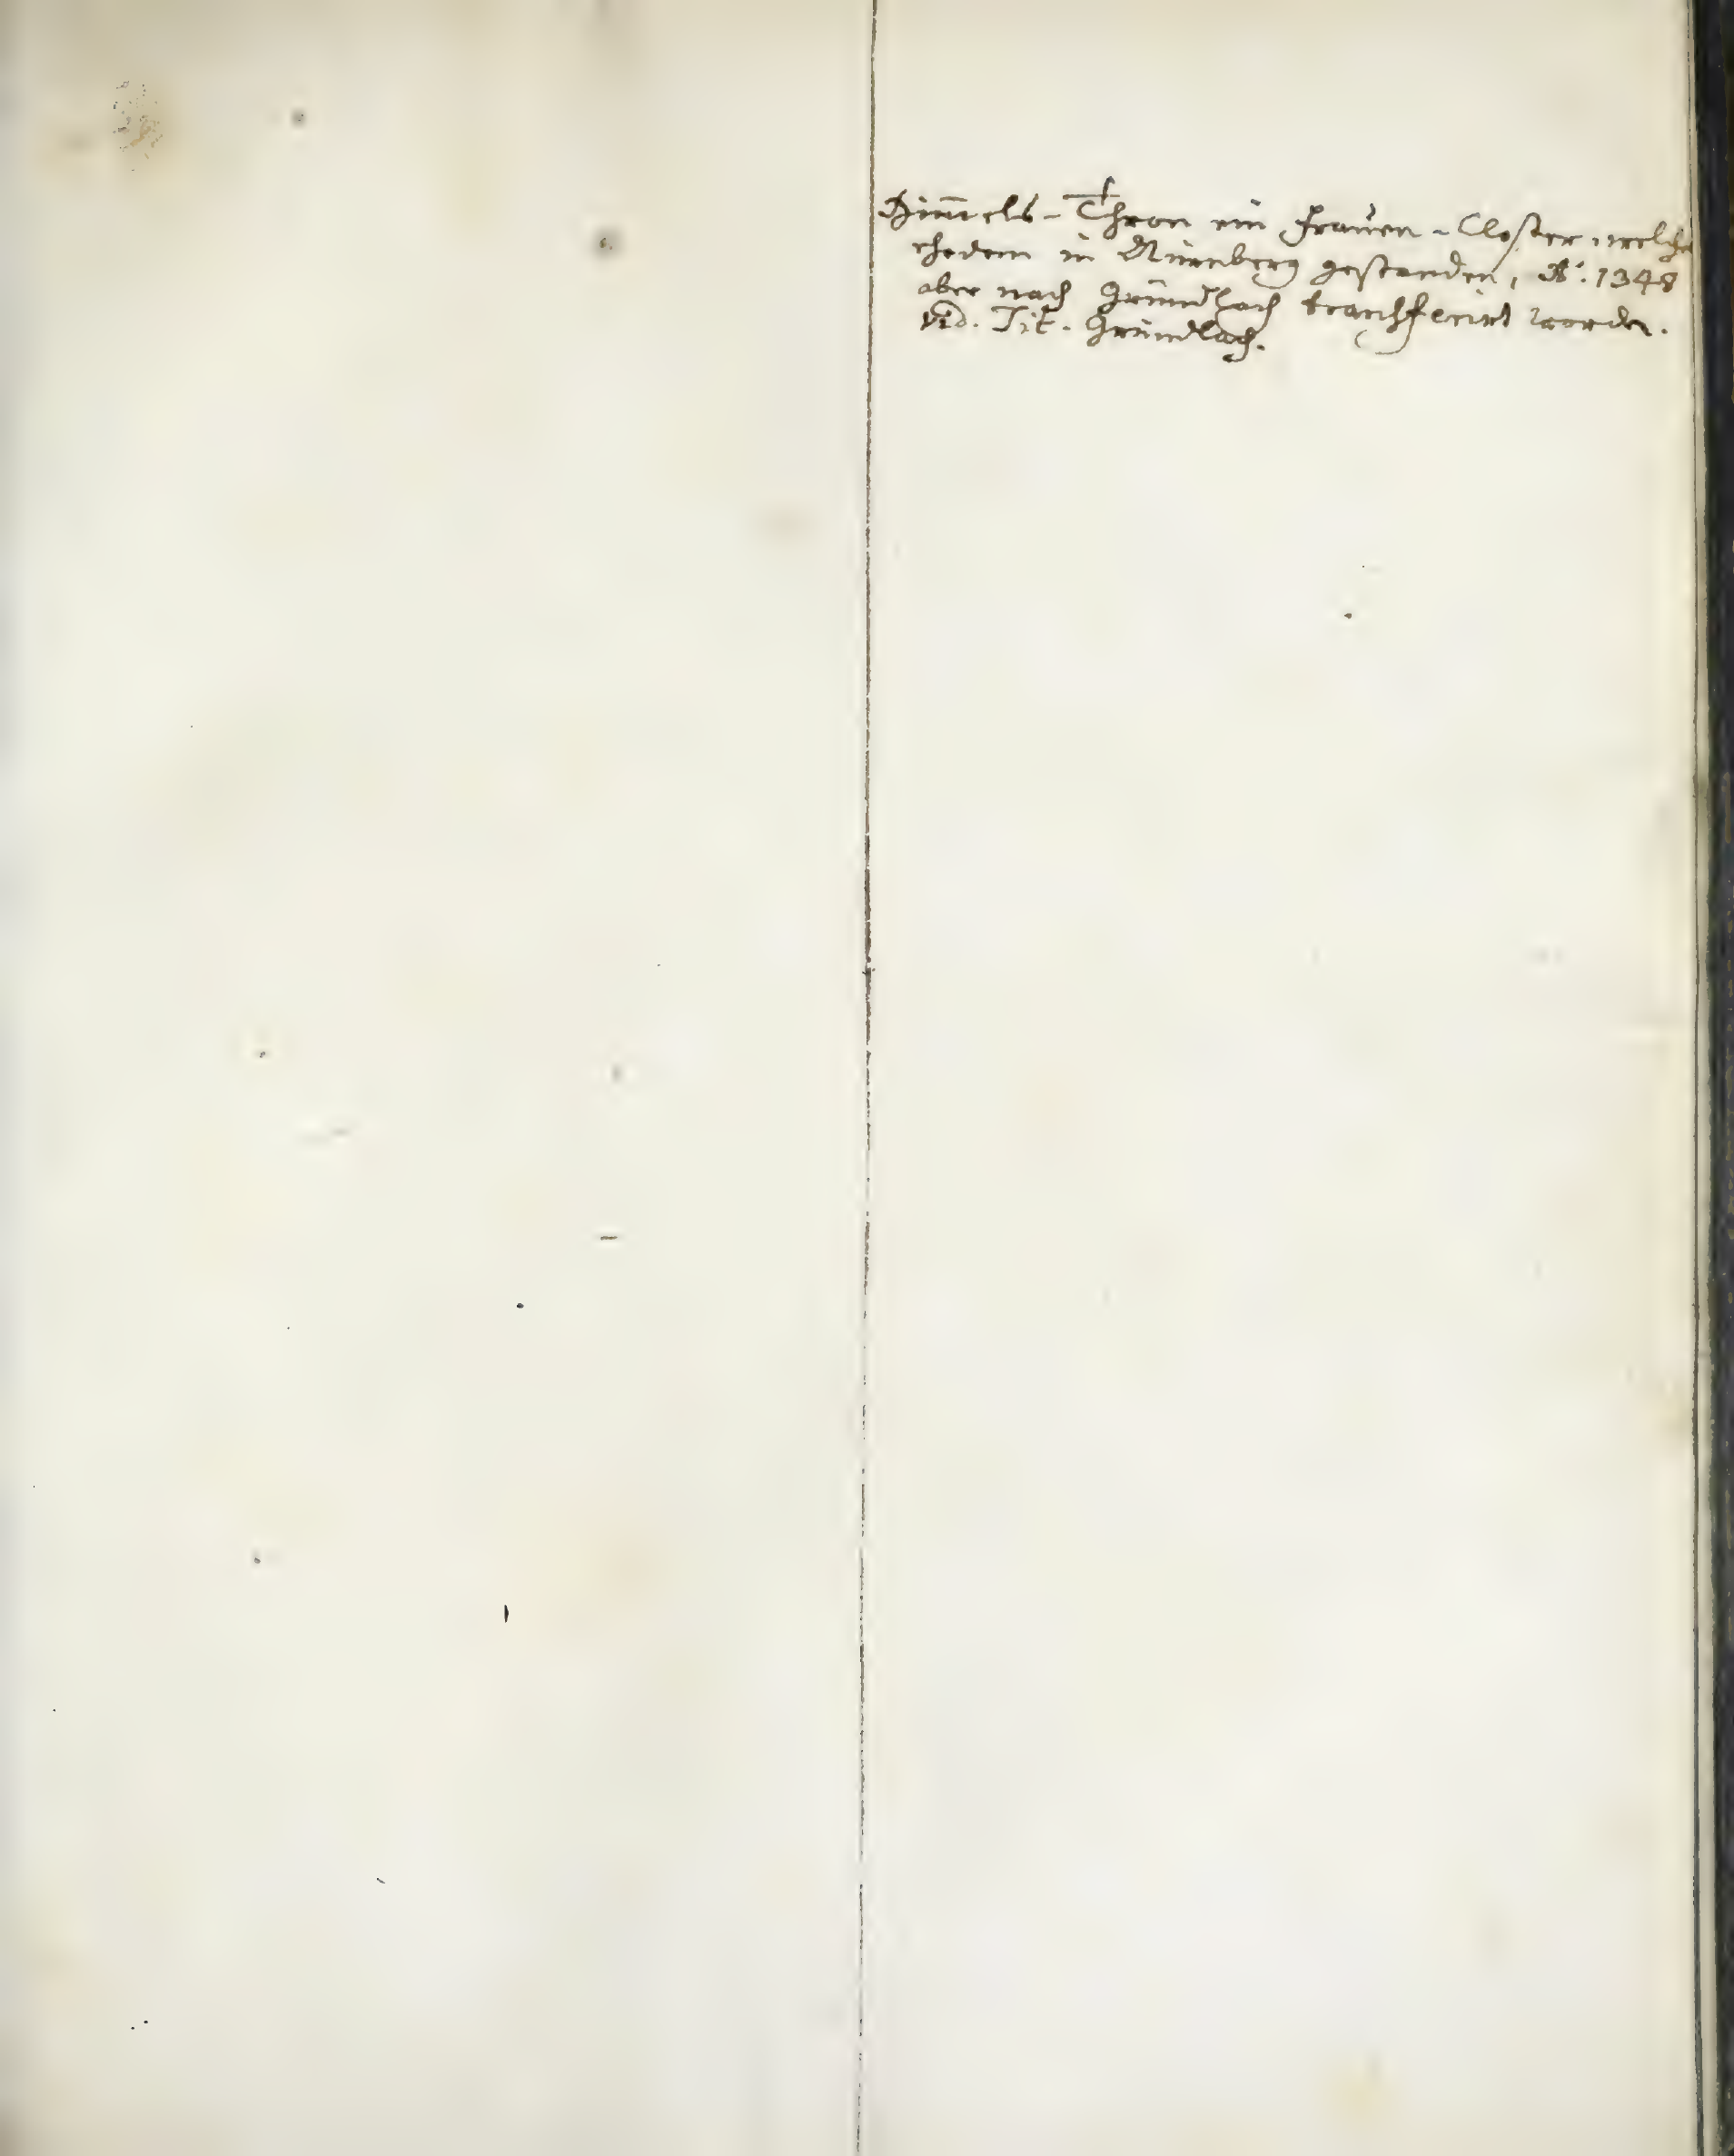 Him̄els-Thron ein Frauen-Closter welches
ehedem in Nürnberg gestanden, Aͦ. 1348
aber nach Gründlach transferirt worden.
vid. Tit. Gründlach.